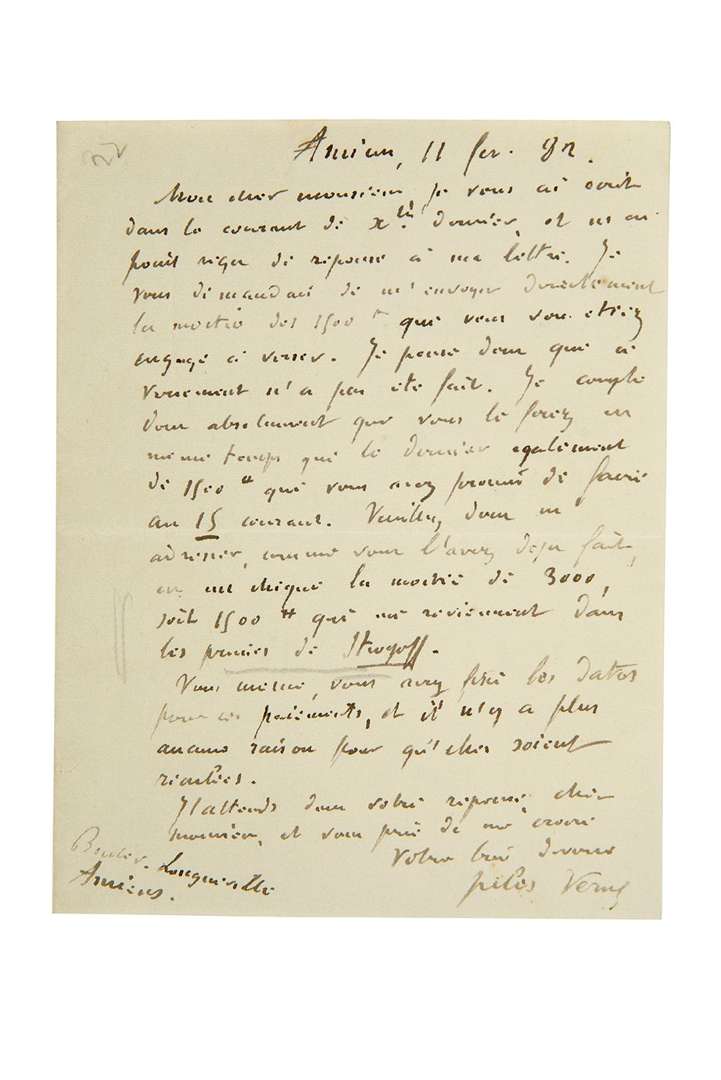 Amiens, 11 fev. 82.
Mon cher monsieur, je vous ai écrit
dans le courant de Xbre dernier, et n'ai
point reçu de réponse à ma lettre. Je
vous demandais de m'envoyer directement
la moitié des 1500 ff que vous vous étiez
engagé à verser. Je pense donc que ce
versement n'a pas été fait. Je compte
donc absolument que vous le ferez en
même temps que le dernier également
de 1500 ff que vous avez promis de faire
au 15 courant. Veuillez donc m'
adresser, comme vous l'avez déjà fait,
en un chèque la moitié de 3000,
soit 1500 ff qui me reviennent dans
les primes de Strogoff.
Vous même, vous avez fixé les dates
pour ces paiements, et il n'y a plus
aucune raison pour qu'elles soient
reculées.
J'attends donc votre réponse, cher
monsieur, et vous prie de me croire
Votre bien dévoué
Jules Verne
Boulev. Longueville
Amiens.